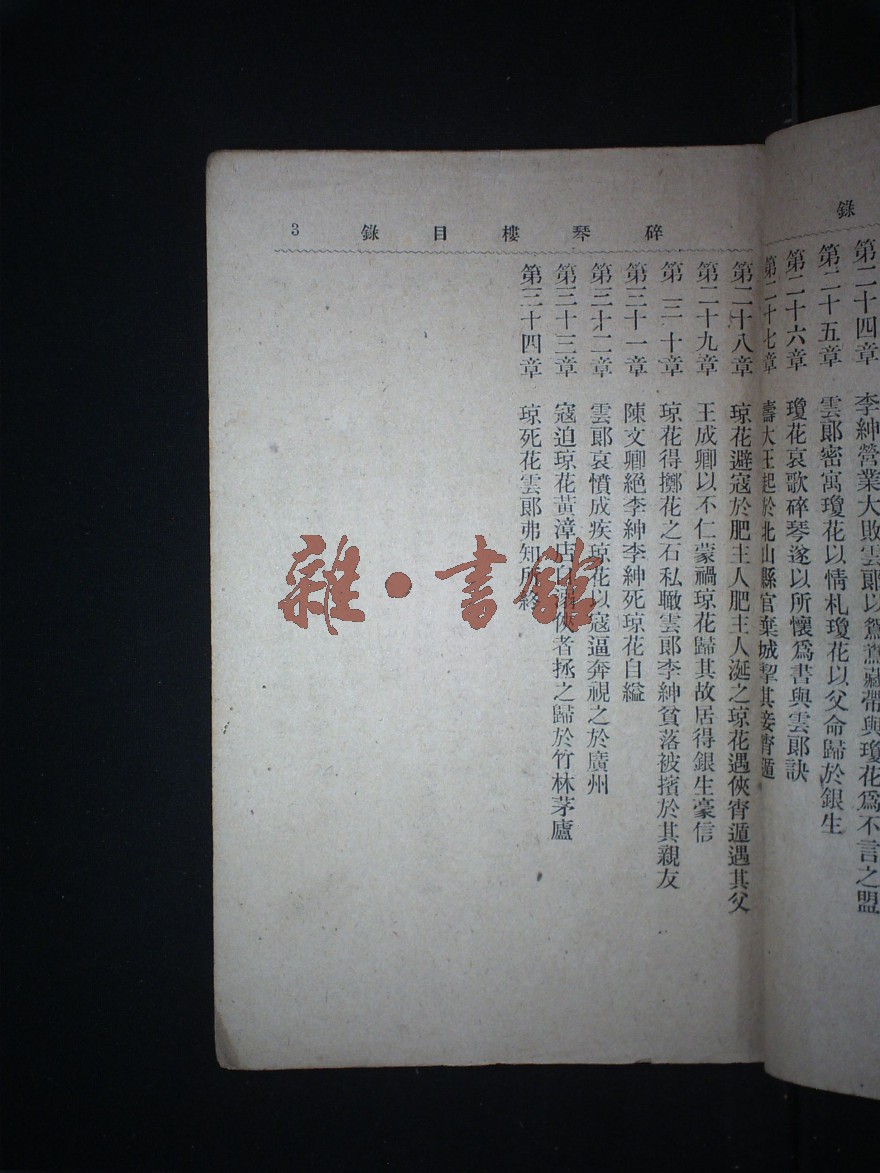 錄
第二十四章 李紳營業大敗雲郞以鴛鴦藏帶與瓊花爲不言之盟
第二十五章 雲郞密寓瓊花以情札瓊花以父命歸於銀生
第二十六章 瓊花哀歌碎琴遂以所懷爲書與雲郞訣
第二十七章 大王起於北山縣官棄城挈其妾宵遁
碎琴樓目錄 3
第二十八章 琼花避寇於肥主人肥主人涎之琼花遇俠宵遁遇其父
第二十九章 王成卿以不仁蒙禍琼花歸其故居得銀生豪信
第三十章 琼花得擲花之石私瞰雲郞李紳貧落被擯於其親友
第三十一章 陳文卿絕李紳李紳死琼花自縊
第三十二章 雲郞哀憤成疾琼花以寇逼奔視之於廣州
第三十三章 寇迫琼花黃漳 俠者拯之歸於竹林茅廬
第三十四章 琼死花雲郞弗知所終
雜·書館